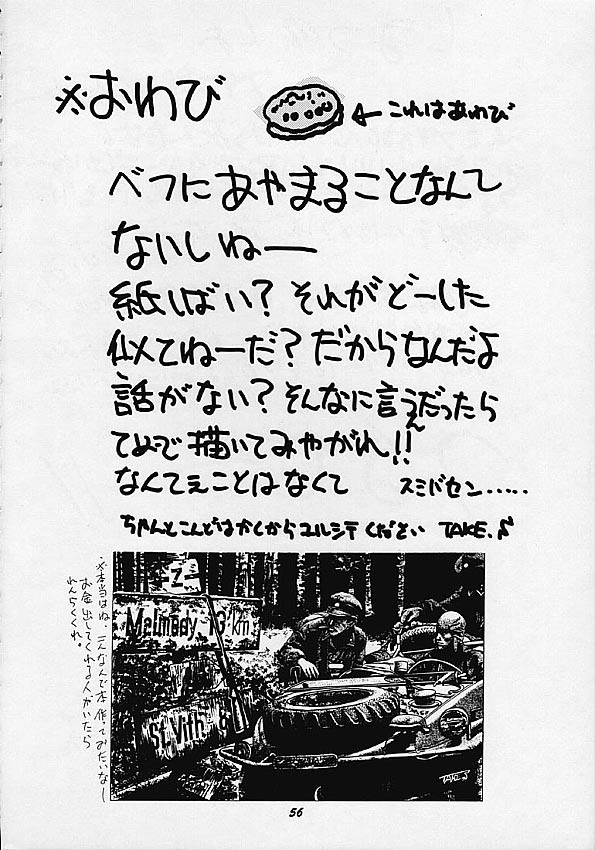 ※おわび
←これはあわび
べつにあやまることなんて
ないしねー
紙しばい?それがどーした
似てねーだ?だからなんだよ
話がない?そんなに言うんだったら
てめーで描いてみやがれ!!
なんてぇことはなくて スミバセン……
ちゃんとこんどはかくからユルシテください TAKE.♪
※本当はね、こんなんで本作ってみたいなー
お金出してくれる人がいたら
れんらくくれ。
-Z-
Malmedy 13 km
St.Vith 8
TAKE.♪
56